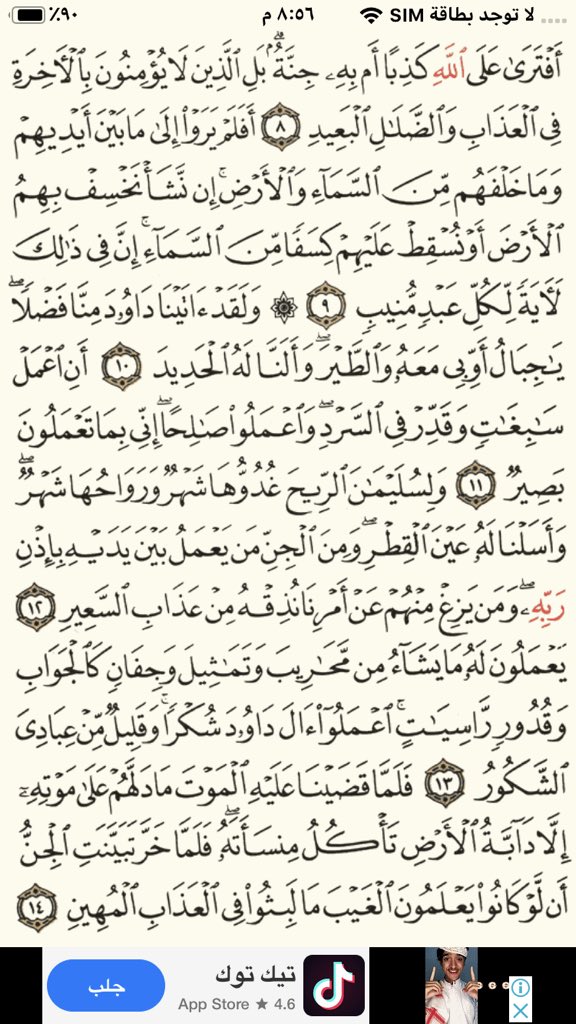 لا توجد بطاقة SIM ٨:٥٦ م ٩٠٪
أَفْتَرَىٰ عَلَى ٱللَّهِ كَذِبًا أَم بِهِۦ جِنَّةُۢ بَلِ ٱلَّذِينَ لَا يُؤْمِنُونَ بِٱلْأَخِرَةِ
فِى ٱلْعَذَابِ وَٱلضَّلَٰلِ ٱلْبَعِيدِ ٨ أَفَلَمْ يَرَوْا۟ إِلَىٰ مَا بَيْنَ أَيْدِيهِمْ
وَمَا خَلْفَهُم مِّنَ ٱلسَّمَآءِ وَٱلْأَرْضِ ۚ إِن نَّشَأْ نَخْسِفْ بِهِمُ
ٱلْأَرْضَ أَوْ نُسْقِطْ عَلَيْهِمْ كِسَفًا مِّنَ ٱلسَّمَآءِ ۚ إِنَّ فِى ذَٰلِكَ
لَأَيَةً لِّكُلِّ عَبْدٍ مُّنِيبٍ ٩ ۞ وَلَقَدْ ءَاتَيْنَا دَاوُۥدَ مِنَّا فَضْلًا ۖ
يَٰجِبَالُ أَوِّبِى مَعَهُۥ وَٱلطَّيْرَ ۖ وَأَلَنَّا لَهُ ٱلْحَدِيدَ ١٠ أَنِ ٱعْمَلْ
سَٰبِغَٰتٍ وَقَدِّرْ فِى ٱلسَّرْدِ ۖ وَٱعْمَلُوا۟ صَٰلِحًا ۖ إِنِّى بِمَا تَعْمَلُونَ
بَصِيرٌ ١١ وَلِسُلَيْمَٰنَ ٱلرِّيحَ غُدُوُّهَا شَهْرٌ وَرَوَاحُهَا شَهْرٌ ۖ
وَأَسَلْنَا لَهُۥ عَيْنَ ٱلْقِطْرِ ۖ وَمِنَ ٱلْجِنِّ مَن يَعْمَلُ بَيْنَ يَدَيْهِ بِإِذْنِ
رَبِّهِۦ ۖ وَمَن يَزِغْ مِنْهُمْ عَنْ أَمْرِنَا نُذِقْهُ مِنْ عَذَابِ ٱلسَّعِيرِ ١٢
يَعْمَلُونَ لَهُۥ مَا يَشَآءُ مِن مَّحَٰرِيبَ وَتَمَٰثِيلَ وَجِفَانٍ كَٱلْجَوَابِ
وَقُدُورٍ رَّاسِيَٰتٍ ۚ ٱعْمَلُوٓا۟ ءَالَ دَاوُۥدَ شُكْرًا ۚ وَقَلِيلٌ مِّنْ عِبَادِىَ
ٱلشَّكُورُ ١٣ فَلَمَّا قَضَيْنَا عَلَيْهِ ٱلْمَوْتَ مَا دَلَّهُمْ عَلَىٰ مَوْتِهِۦٓ
إِلَّا دَآبَّةُ ٱلْأَرْضِ تَأْكُلُ مِنسَأَتَهُۥ ۖ فَلَمَّا خَرَّ تَبَيَّنَتِ ٱلْجِنُّ
أَن لَّوْ كَانُوا۟ يَعْلَمُونَ ٱلْغَيْبَ مَا لَبِثُوا۟ فِى ٱلْعَذَابِ ٱلْمُهِينِ ١٤
تيك توك
App Store ★ 4.6
جلب